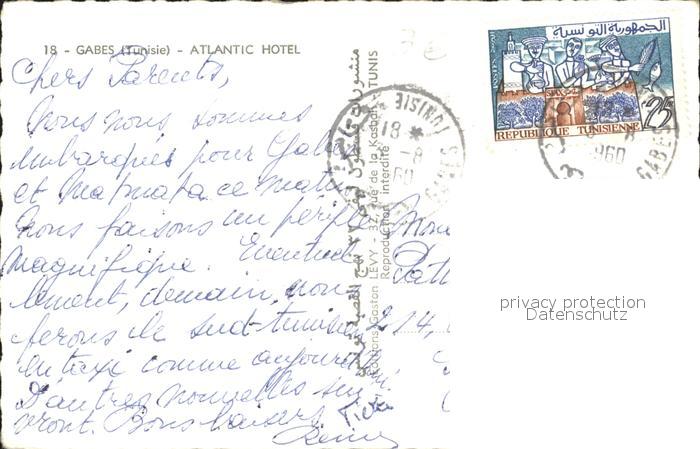 18 - GABES (Tunisie) - ATLANTIC HOTEL
Chers Parents,
Nous nous sommes
embarqués pour Gabès
et Matmata ce matin
Nous faisons un périple
magnifique. Eventuel
lement, demain, nous
ferons le sud-tunisien
en taxi comme aujourd'hui
D'autres nouvelles sui
vront. Bons baisers
Editions Gaston LEVY - 37, rue de la Kasbah - TUNIS
Reproduction interdite
TUNISIE
GABES
18
-8
60
الجمهورية التونسية
POSTES
25
REPUBLIQUE TUNISIENNE
1960
GABES
214,
privacy protection
Datenschutz